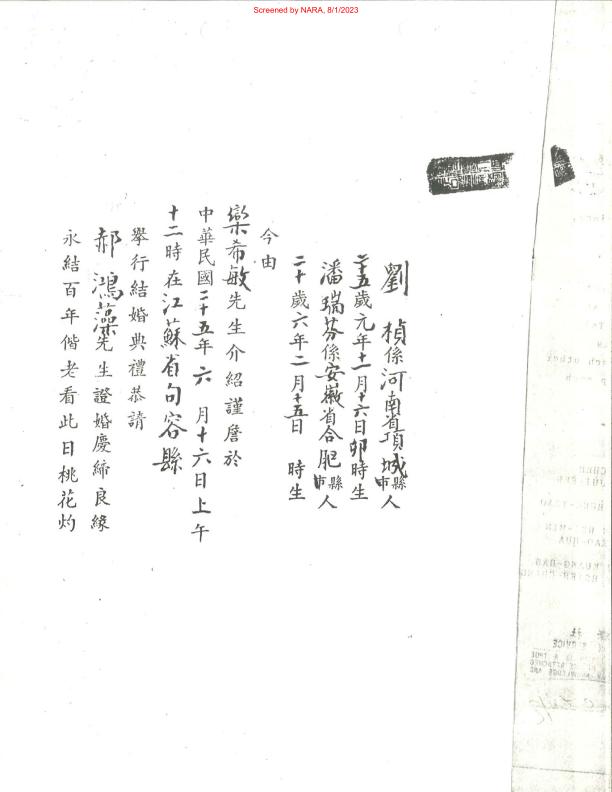 Screened by NARA, 8/1/2023
劉楨係河南省項城縣市人
二十五歲元年十一月十六日卯時生
潘瑞芬係安徽省合肥縣市人
二十歲六年二月十五日 時生
今由
欒希敏先生介紹謹詹於
中華民國二十五年六月十六日上午
十二時在江蘇省句容縣
舉行結婚典禮恭請
郝鴻藻先生證婚慶締良緣
永結百年偕老看此日桃花灼